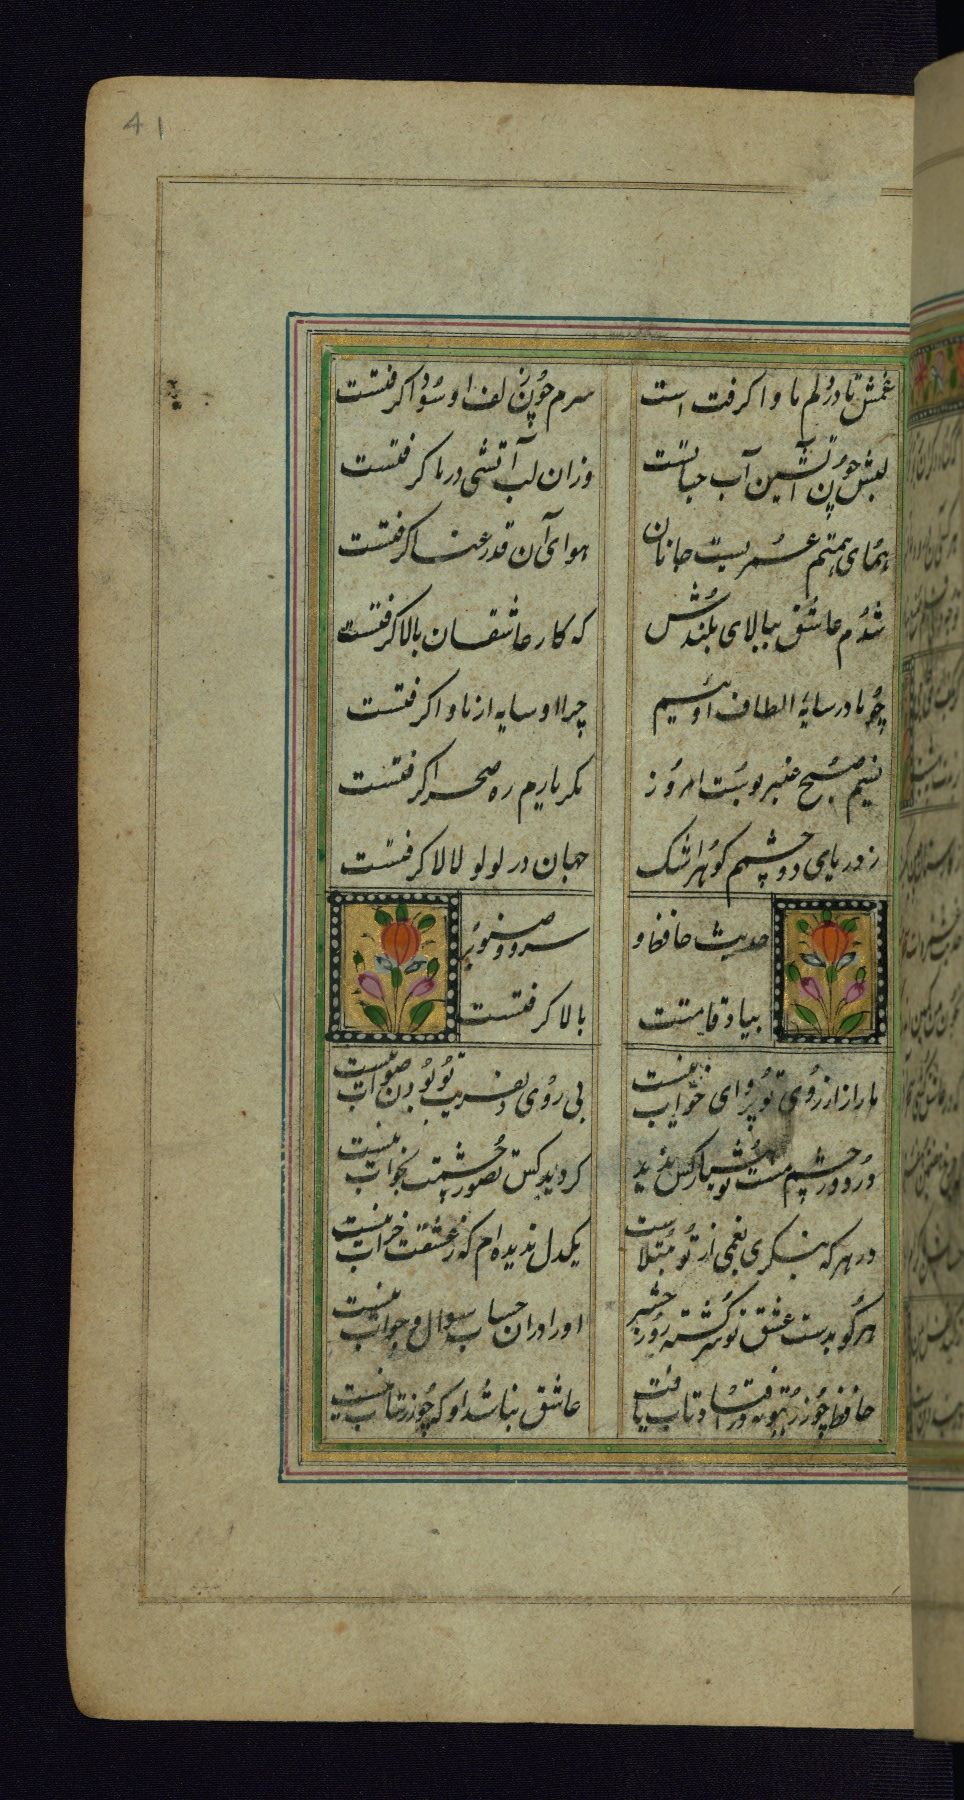 41
غمش تا در دلم ماوا کرفت است
سرم چون زلف او سودا کرفتست
لبش چون آتشین آب حیاتست
وزان لب آتشی در ما کرفتست
همای همتم عمریست جانان
هوای آن قد رعنا کرفتست
شدم عاشق ببالای بلندش
که کار عاشقان بالا کرفتست
چو ما در سایهٔ الطاف اوئیم
چرا او سایه از ما وا کرفتست
نسیم صبح عنبر بوست امروز
مکر یارم ره صحرا کرفتست
ز دریای دو چشمم کوهر اشک
جهان در لولو لالا کرفتست
حدیث حافظ و
سرو و صنوبر
بیاد قامتت
بالا کرفتست
ما را ز ارزوی تو پروای خواب نیست
بی روی دلفریب تو بودن صواب نیست
در دور چشم مست تو هشیار کس ندید
کو دیده کش تصور چشمت بخواب نیست
در هر که بنکری بغمی از تو مبتلاست
یکدل ندیده ام که ز عشقت خراب نیست
هر کو بدست عشق تو سرکشته روز حشر
او را در ان حساب سوال و جواب نیست
حافظ چو زر ببوته در افتاد و تاب یافت
عاشق نباشد او که چو زر بتاب نیست